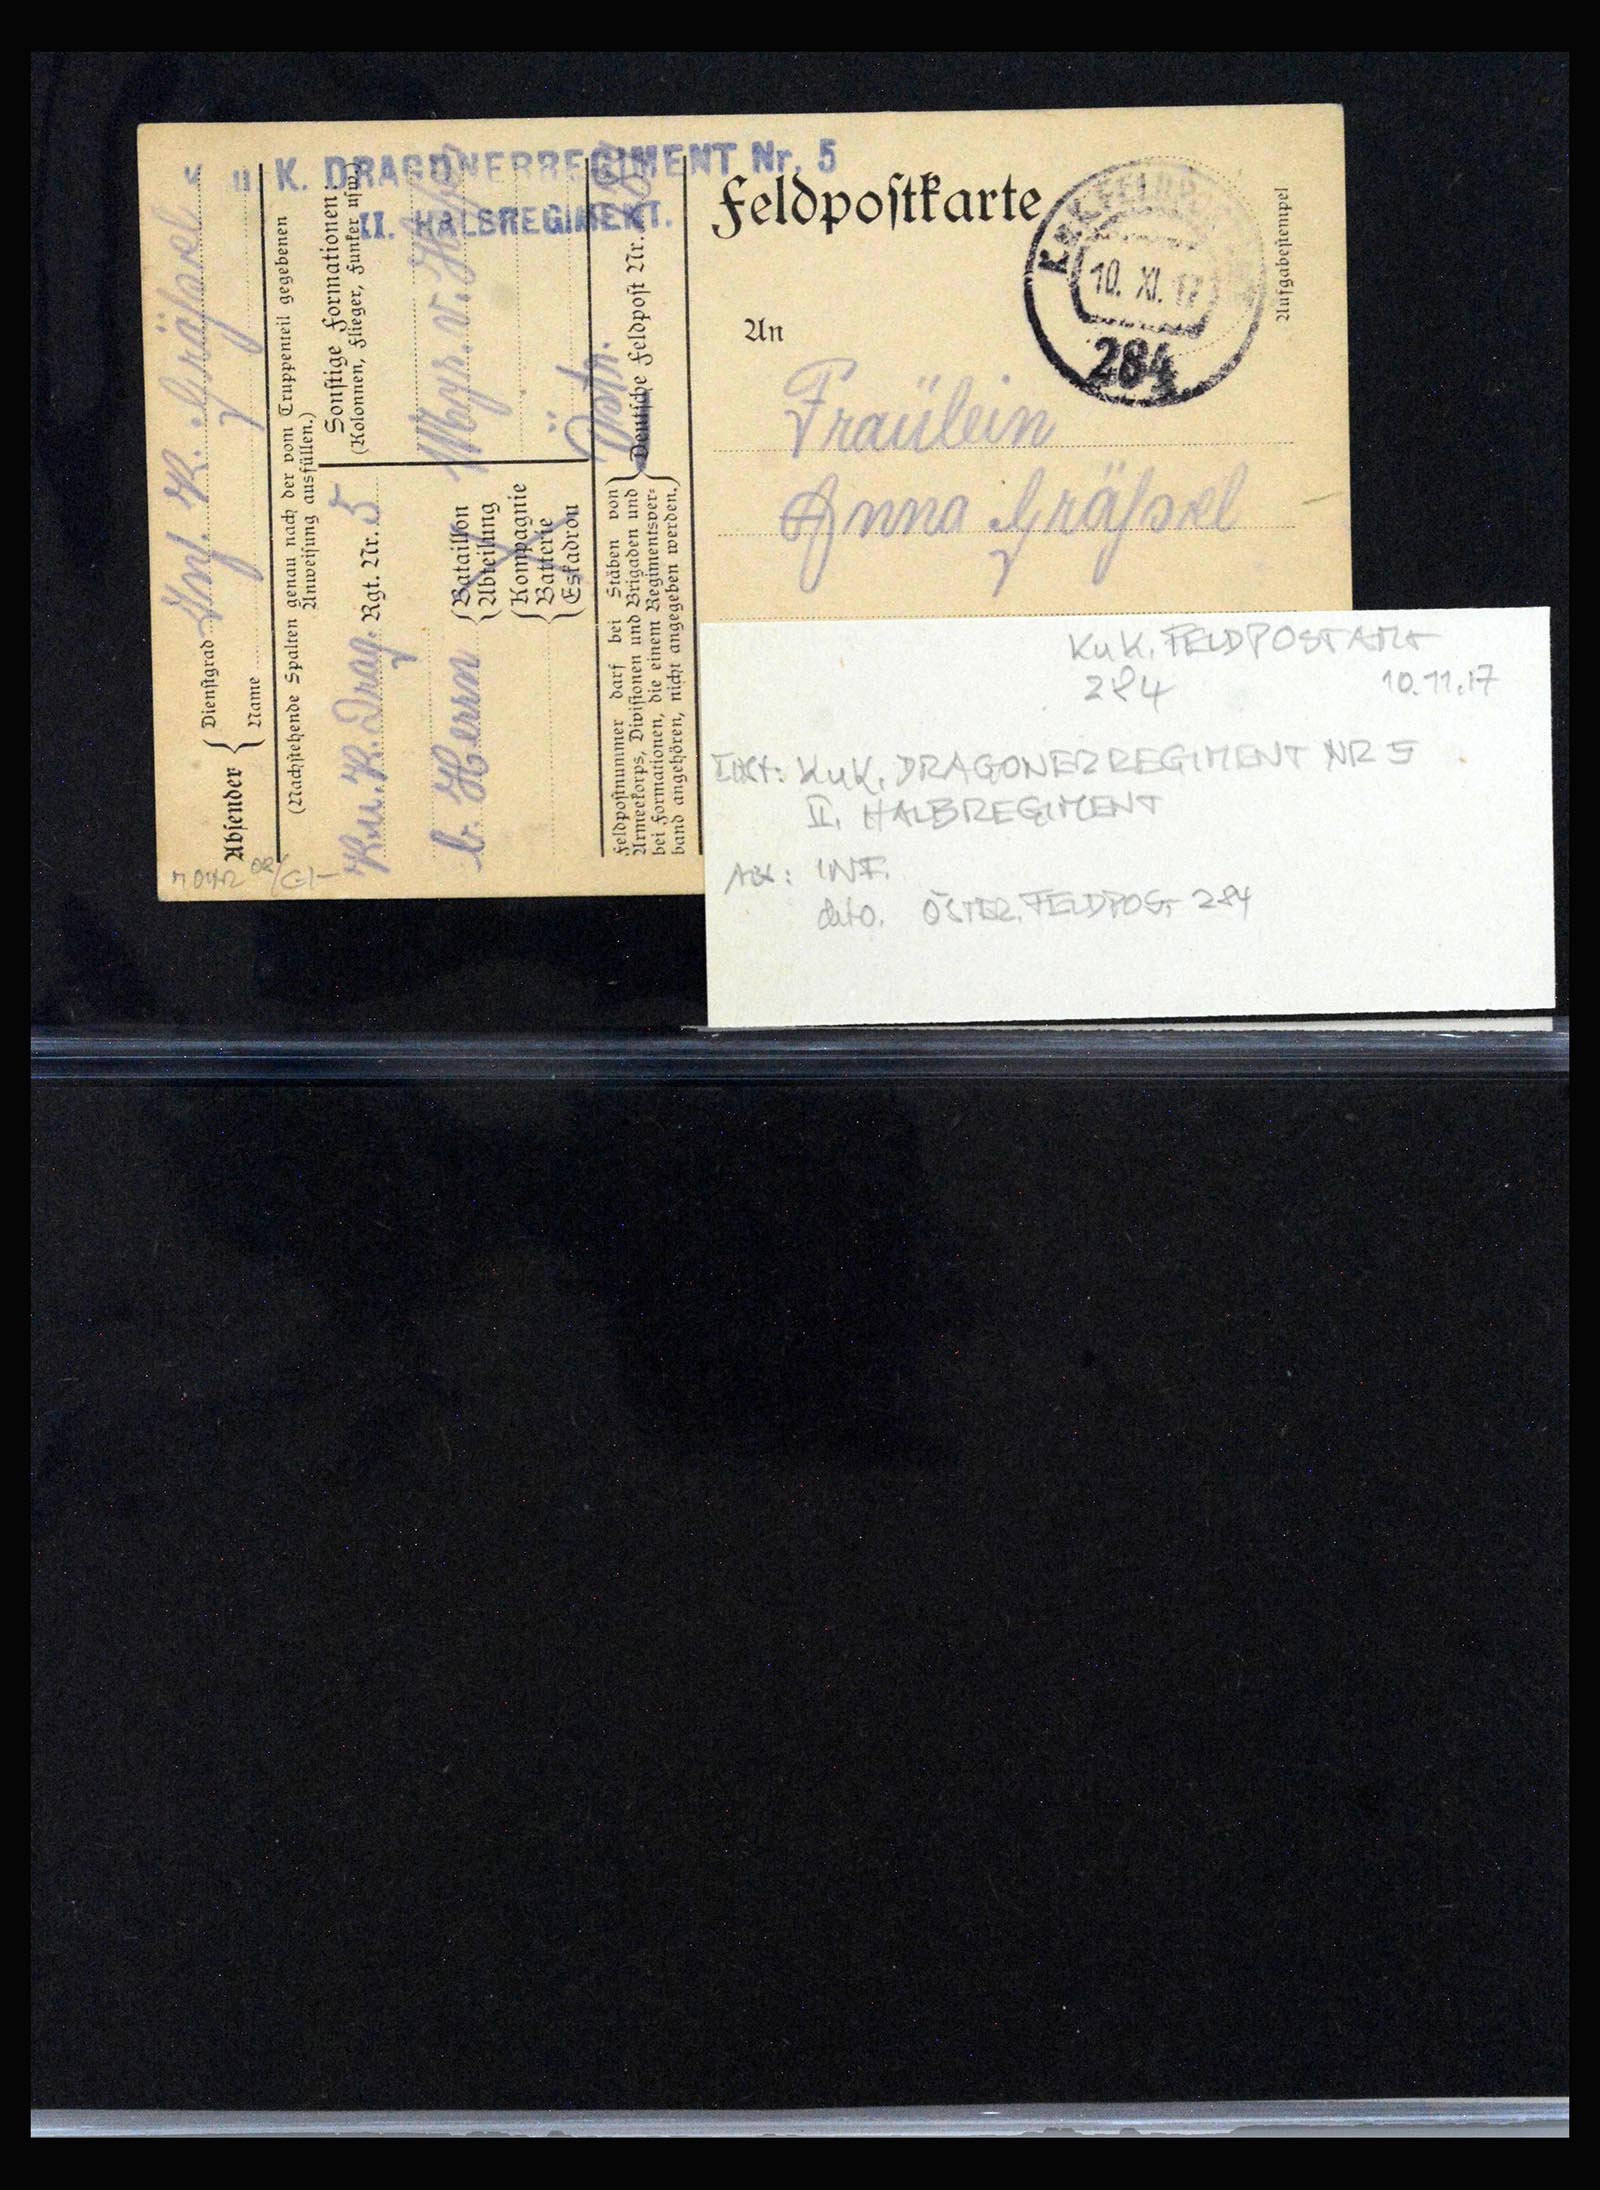 K. DRAGONERREGIMENT Nr. 5
II. HALBREGIMENT.
Feldpostkarte
K.u.K. FELDPOST
10. XI. 17
284
Aufgabestempel
An
Fräulein
Anna Gräßel
Absender { Dienstgrad Inf. K. Gräßel
Name
(Nachstehende Spalten genau nach der vom Truppenteil gegebenen
Anweisung ausfüllen.)
K.u.K. Drag. Rgt. Nr. 5
Sonstige Formationen:
(Kolonnen, Flieger, Funker usw.)
b. Herrn
{ Bataillon
Abteilung
{ Kompagnie
Batterie
Eskadron
Östr.
Deutsche Feldpost Nr.
Feldpostnummer darf bei Stäben von
Armeekorps, Divisionen und Brigaden und
bei Formationen, die einem Regimentsver-
band angehören, nicht angegeben werden. }
KuK. FELDPOSTAMT
284 10.11.17
KuK. DRAGONERREGIMENT NR 5
II. HALBREGIMENT
ABS: INF.
dto. ÖSTER. FELDPOST 284